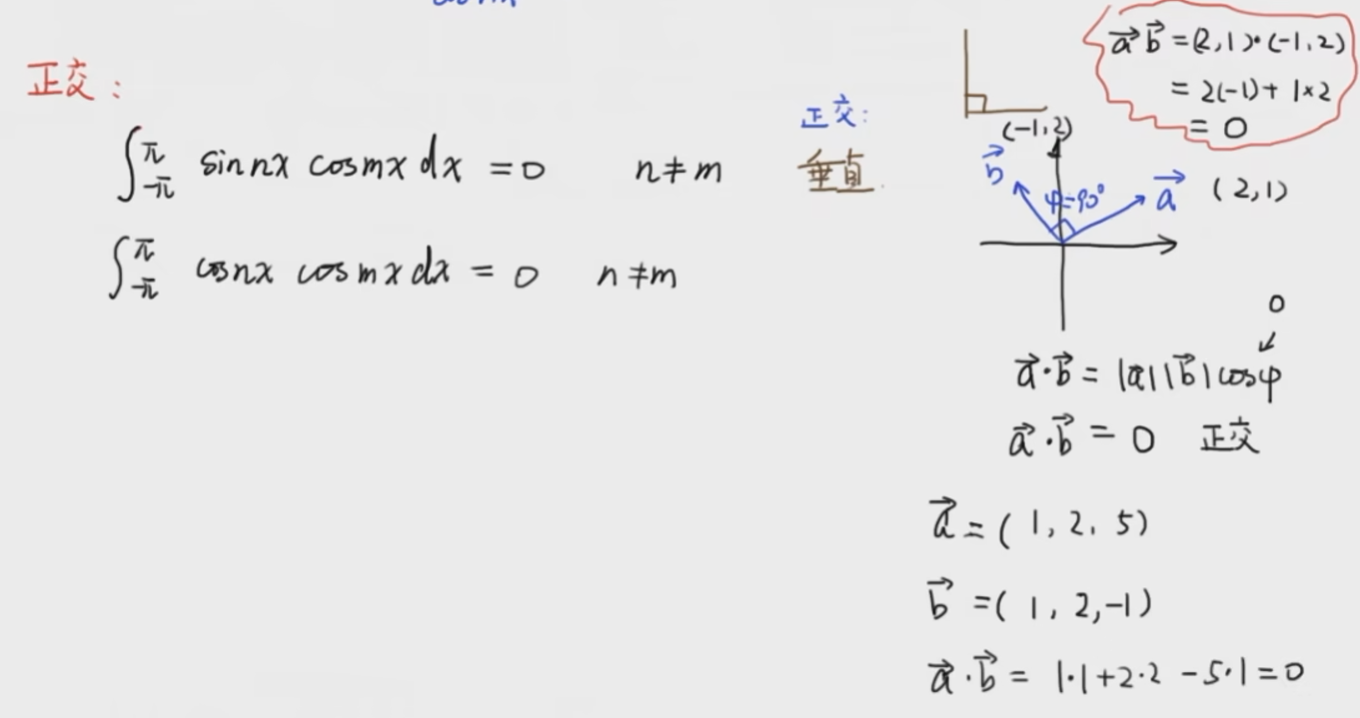 正交:
∫_{-π}^{π} sin nx cos mx dx = 0 n ≠ m
∫_{-π}^{π} cos nx cos mx dx = 0 n ≠ m
正交:
垂直.
a⃗ b⃗ = (2,1)·(-1,2)
= 2(-1) + 1×2
= 0
(-1,2)
b⃗
φ=90°
a⃗ (2,1)
0
a⃗·b⃗ = |a⃗||b⃗|cosφ
a⃗·b⃗ = 0 正交
a⃗ = (1, 2, 5)
b⃗ = (1, 2, -1)
a⃗·b⃗ = 1·1+2·2 -5·1 = 0